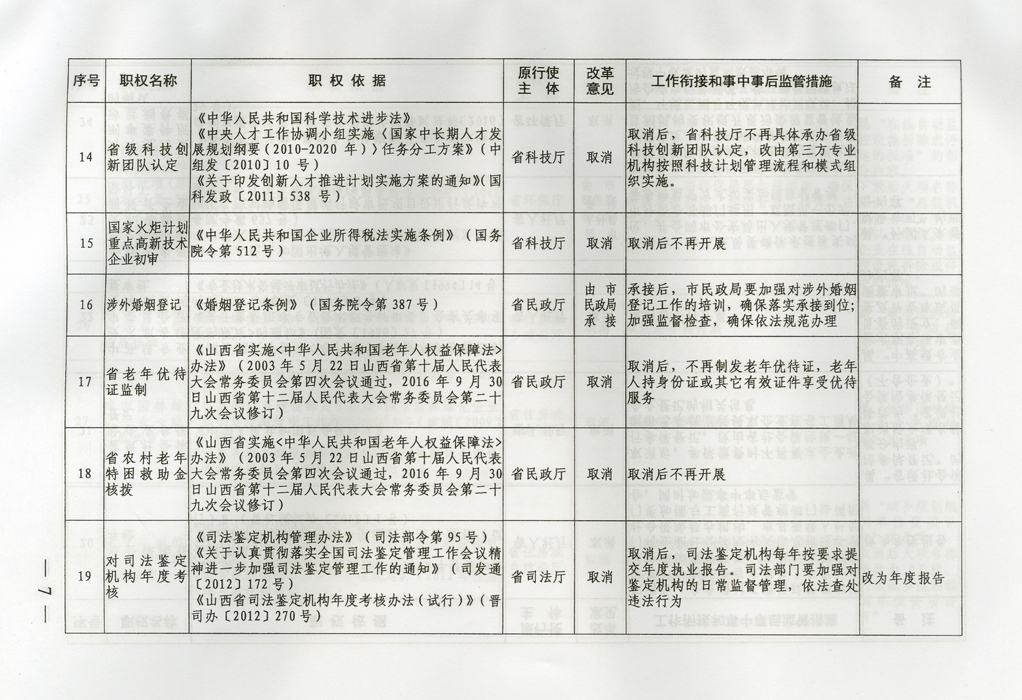 序号 职权名称 职 权 依 据 原行使主 体 改革意见 工作衔接和事中事后监管措施 备 注
14
省级科技创
新团队认定
《中华人民共和国科学技术进步法》
《中央人才工作协调小组实施〈国家中长期人才发
展规划纲要(2010-2020 年)〉任务分工方案》(中
组发〔2010〕10 号)
《关于印发创新人才推进计划实施方案的通知》(国
科发政〔2011〕538 号)
省科技厅
取消
取消后，省科技厅不再具体承办省级
科技创新团队认定，改由第三方专业
机构按照科技计划管理流程和模式组
织实施。
15
国家火炬计划
重点高新技术
企业初审
《中华人民共和国企业所得税法实施条例》(国务
院令第 512 号)
省科技厅
取消
取消后不再开展
16
涉外婚姻登记
《婚姻登记条例》(国务院令第 387 号)
省民政厅
由 市
民政局
承 接
承接后，市民政局要加强对涉外婚姻
登记工作的培训，确保落实承接到位；
加强监督检查，确保依法规范办理
17
省老年优待
证监制
《山西省实施<中华人民共和国老年人权益保障法>
办法》(2003 年 5 月 22 日山西省第十届人民代表
大会常务委员会第四次会议通过，2016 年 9 月 30
日山西省第十二届人民代表大会常务委员会第二十
九次会议修订)
省民政厅
取消
取消后，不再制发老年优待证，老年
人持身份证或其它有效证件享受优待
服务
18
省农村老年
特困救助金
核拨
《山西省实施<中华人民共和国老年人权益保障法>
办法》(2003 年 5 月 22 日山西省第十届人民代表
大会常务委员会第四次会议通过，2016 年 9 月 30
日山西省第十二届人民代表大会常务委员会第二十
九次会议修订)
省民政厅
取消
取消后不再开展
19
对司法鉴定
机构年度考
核
《司法鉴定机构管理办法》(司法部令第 95 号)
《关于认真贯彻落实全国司法鉴定管理工作会议精
神进一步加强司法鉴定管理工作的通知》(司发通
〔2012〕172 号)
《山西省司法鉴定机构年度考核办法(试行)》(晋
司办〔2012〕270 号)
省司法厅
取消
取消后，司法鉴定机构每年按要求提
交年度执业报告。司法部门要加强对
鉴定机构的日常监督管理，依法查处
违法行为
改为年度报告
— 7 —